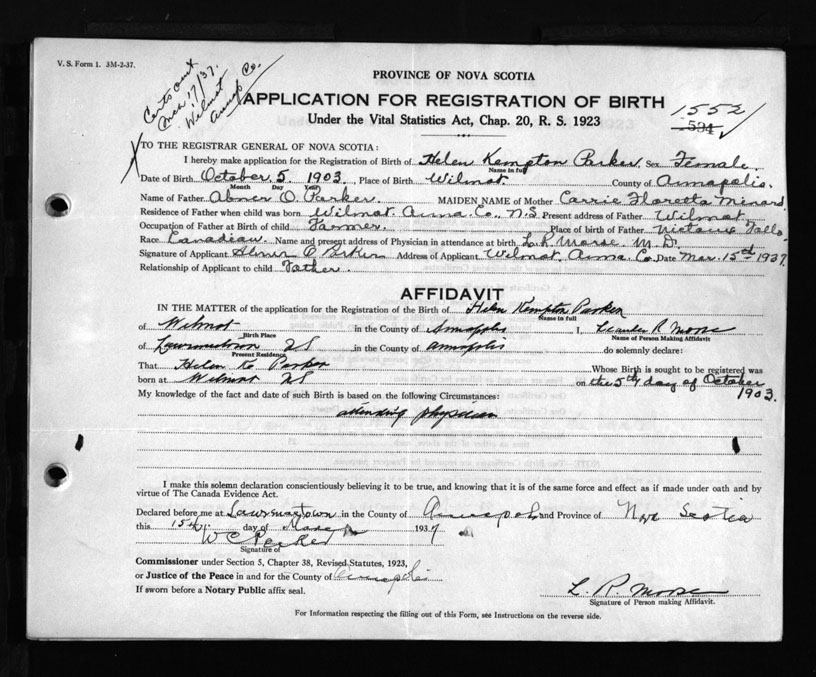 V. S. Form 1. 3M-2-37.
Certs out
Mar 17/37.
Wilmot
Anna Co.
PROVINCE OF NOVA SCOTIA
APPLICATION FOR REGISTRATION OF BIRTH
Under the Vital Statistics Act, Chap. 20, R. S. 1923
1552
594
TO THE REGISTRAR GENERAL OF NOVA SCOTIA:
I hereby make application for the Registration of Birth of Helen Kempton Parker. Sex Female.
Name in full
Date of Birth October 5 1903, Place of Birth Wilmot. County of Annapolis.
Month Day Year
Name of Father Abner O. Parker. MAIDEN NAME of Mother Carrie Floretta Minard
Residence of Father when child was born Wilmot. Anna. Co., N.S. Present address of Father Wilmot.
Occupation of Father at Birth of child Farmer. Place of birth of Father Nictaux Falls
Race Canadian. Name and present address of Physician in attendance at birth L. R. Morse. M. D.
Signature of Applicant Abner O. Parker Address of Applicant Wilmot. Anna. Co. Date Mar. 15th 1937.
Relationship of Applicant to child Father.
AFFIDAVIT
IN THE MATTER of the application for the Registration of the Birth of Helen Kempton Parker
Name in full
of Wilmot in the County of Annapolis I, Leander R Morse
Birth Place Name of Person Making Affidavit
of Lawrencetown NS in the County of Annapolis do solemnly declare:
Present Residence
That Helen K. Parker Whose Birth is sought to be registered was
born at Wilmot NS on the 5th day of October
1903.
My knowledge of the fact and date of such Birth is based on the following Circumstances:
attending physician
I make this solemn declaration conscientiously believing it to be true, and knowing that it is of the same force and effect as if made under oath and by
virtue of The Canada Evidence Act.
Declared before me at Lawrencetown in the County of Annapolis and Province of Nova Scotia
this 15th day of March 1937
W C Parker
Signature of
Commissioner under Section 5, Chapter 38, Revised Statutes, 1923,
or Justice of the Peace in and for the County of Annapolis
If sworn before a Notary Public affix seal.
L. R. Morse
Signature of Person making Affidavit.
For Information respecting the filling out of this Form, see Instructions on the reverse side.